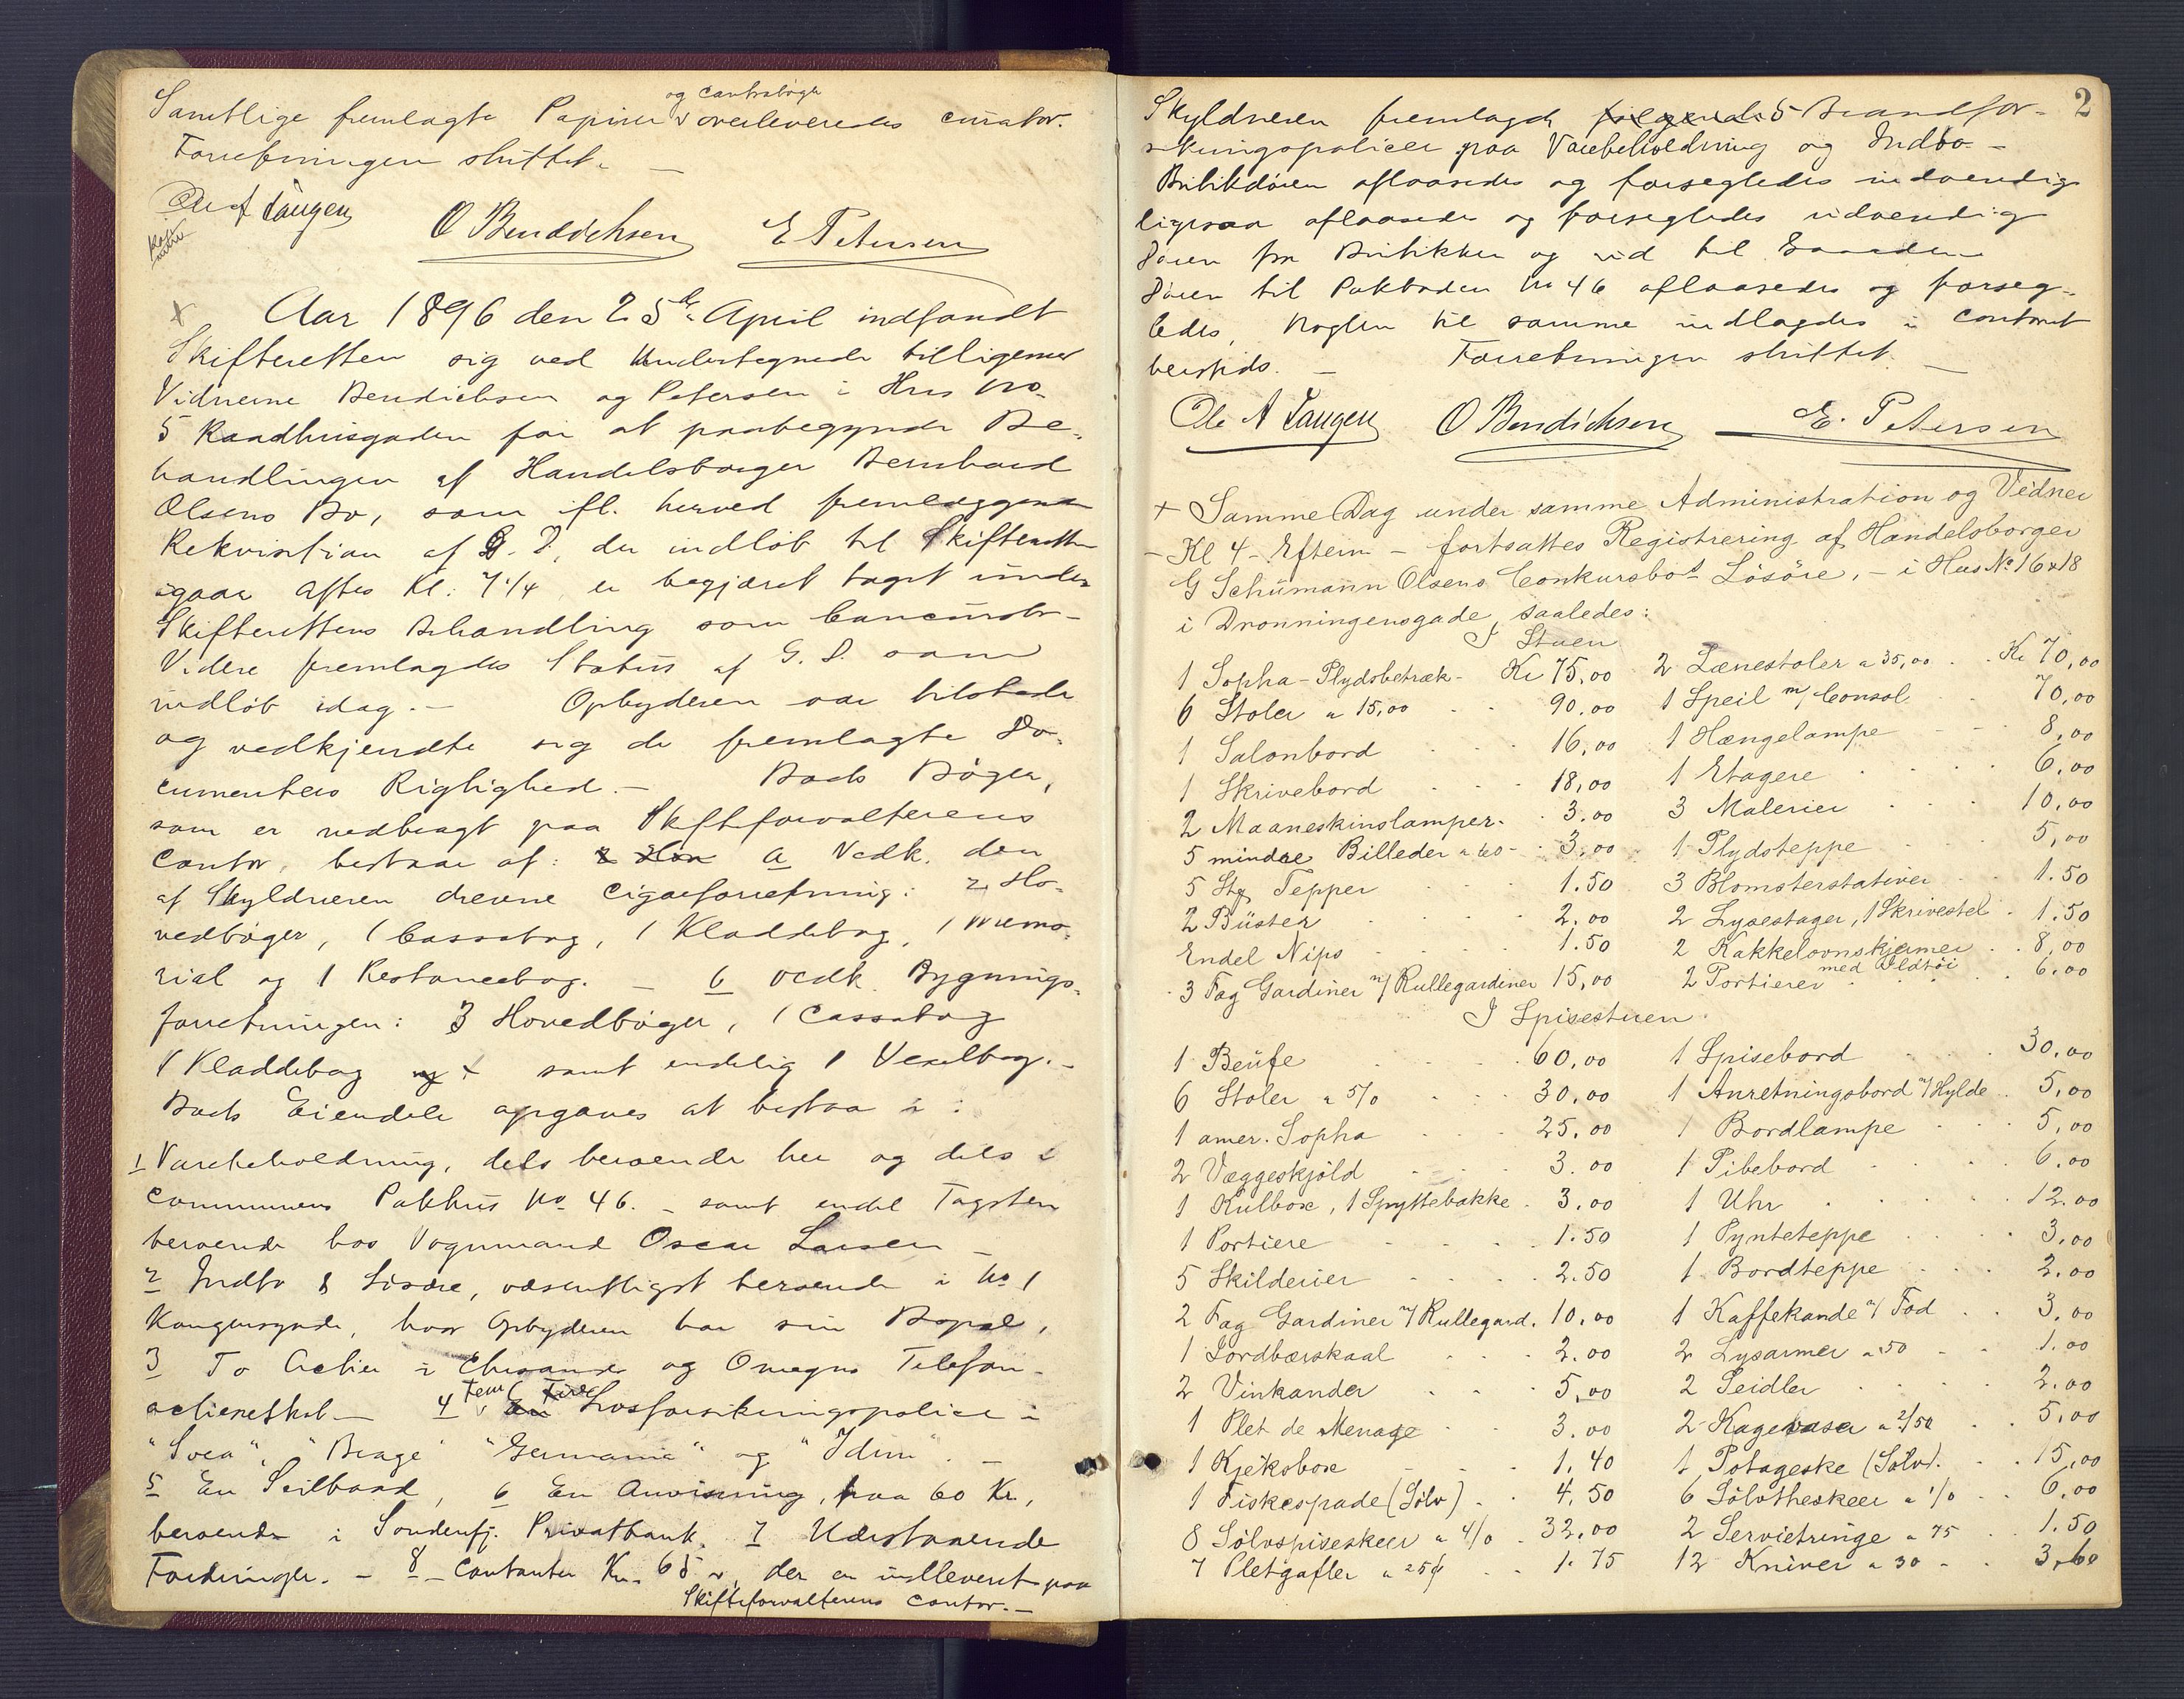 og Contrabøger
Samtlige fremlagte Papirer v overleveredes curator.
Forretningen sluttet. —
Ole A Tangen
O Bendichsen E Petersen
x Aar 1896 den 25de April indfandt
Skifteretten sig ved Undertegnede tilligemed
Vidnerne Bendichsen og Petersen i Hus No.
5 Raadhusgaden for at paabegynde Be-
handlingen af Handelsborger Bernhard
Olsens Bo, som ifl. herved fremlæggende
Rekvisition af G. D. der indløb til Skifteretten
igaar Aftes Kl: 7 1/4, er begjæret taget under
Skifterettens Behandling som Concursbo —
Videre fremlagdes Status af G. D. som
indløb idag. — Opbyderen var tilstede
og vedkjendte sig de fremlagte Do-
cumenters Rigtighed. — Boets Bøger,
som er nedbragt paa Skifteforvalterens
Contor, bestaar af: a Vedk. den
af Skyldneren drevne Cigarforretning: 2 Ho-
vedbøger, 1 Cassabog, 1 Kladdebog, 1 Memo-
rial og 1 Restancebog. — b vedk. Bygnings-
forretningen: 3 Hovedbøger, 1 Cassabog
1 Kladdebog og x samt endelig 1 Vexelbog. —
Boets Eiendele opgaves at bestaa i:
1 Varebeholdning, dels beroende her og dels i
Communens Pakhus No 46. — samt endel Tagsten
beroende hos Vognmand Oscar Larsen —
2 Indbo & Løsøre, væsentligst beroende i No 1
Kongensgade, hvor Opbyderen har sin Bopæl,
3 To Actier i Chrsands og Omegns Telefon-
actieselskab — 4 Fem Livsforsikringspolicer i
"Svea", "Brage" "Germania" og "Idun". —
5 En Seilbaad, 6 En Anvisning, paa 60 Kr,
beroende i Søndenfj. Privatbank. 7 Udestaaende
Fordringer. — 8 — Contanter Kr. 65 , der er indleveret paa
Skifteforvalterens Contor. —
2
Skyldneren fremlagde følgende 5 Brandfor-
sikringspolicer paa Varebeholdning og Indbo —
Butikdøren aflaasedes og forsegledes indvendig
ligesaa aflaasedes og forsegledes udvendig
Døren fra Butikken og ud til Gaarden
Døren til Pakboden No 46 aflaasedes og forseg-
ledes, Nøglen til samme indlagdes i Contoret
Forretningen sluttet. —
Ole A Tangen O Bendichsen E. Petersen
+ Samme Dag under samme Administration og Vidner
— Kl 4 — Efterm — fortsattes Registrering af Handelsborger
G Schumann Olsens Conkursbo's Løsøre, — i Hus No 16 & 18
i Dronningensgade, saaledes:
I Stuen
1 Sopha — Plydsbetræk — Kr 75,00 2 Lænestoler a 35,00 . . Kr 70,00
6 Stoler a 15,00 . . 90.00 1 Speil m/ Consol . 70,00
1 Salonbord . . . 16,00 1 Hængelampe . . 8,00
1 Skrivebord . . . 18,00 1 Etagere . . . . 6,00
2 Maaneskinslamper . . 3.00 3 Malerier . . . 10,00
5 mindre Billeder a 60 . 3,00 1 Plydsteppe . . . 5,00
5 Stk Tepper . . . 1.50 3 Blomsterstativer . . 1.50
2 Büster . . . . 2,00 2 Lysestager, 1 Skrivestel . 1.50
Endel Nips . . . . 1.50 2 Kakkelovnskjermer . . 8,00
med Ildtöi
3 Fag Gardiner m/ Rullegardiner 15,00 2 Portierer . . . 6.00
I Spisestuen.
1 Beüfe . . . 60,00 1 Spisebord . . . 30,00
6 Stoler a 5/0 . . . 30.00 1 Anretningsbord m/ Hylde . 5,00
1 amer. Sopha . . . 25.00 1 Bordlampe . . . 5,00
2 Væggeskjöld . . . 3.00 1 Pibebord . . . . 6.00
1 Kulboxe, 1 Spyttebakke . 3.00 1 Uhr . . . . 12.00
1 Portiere . . . 1.50 1 Pynteteppe . . . 3.00
5 Skilderier . . . 2.50 1 Bordteppe . . . 2.00
2 Fag Gardiner m/ Rullegard. 10.00 1 Kaffekande m/ Fad . . 3,00
1 Jordbærskaal . . . 2.00 2 Lysarmer a 50 . . 1.00
2 Vinkander . . . 5,00 2 Seidler . . . . 2.00
1 Plet de Menage . . 3.00 2 Kagevaser a 2/50 . . 5,00
1 Kjeksboxe . . . 1.40 1 Potageske (Sölv). . . 15,00
1 Fiskespade (Sölv) . . 4.50 6 Sölvtheskeer a 1/0 . . 6,00
8 Sölvspiseskeer a 4/0 . 32.00 2 Servietringe a 75 . . 1.50
7 Pletgafler a 25ø . . 1.75 12 Kniver a 30 . . 3,60